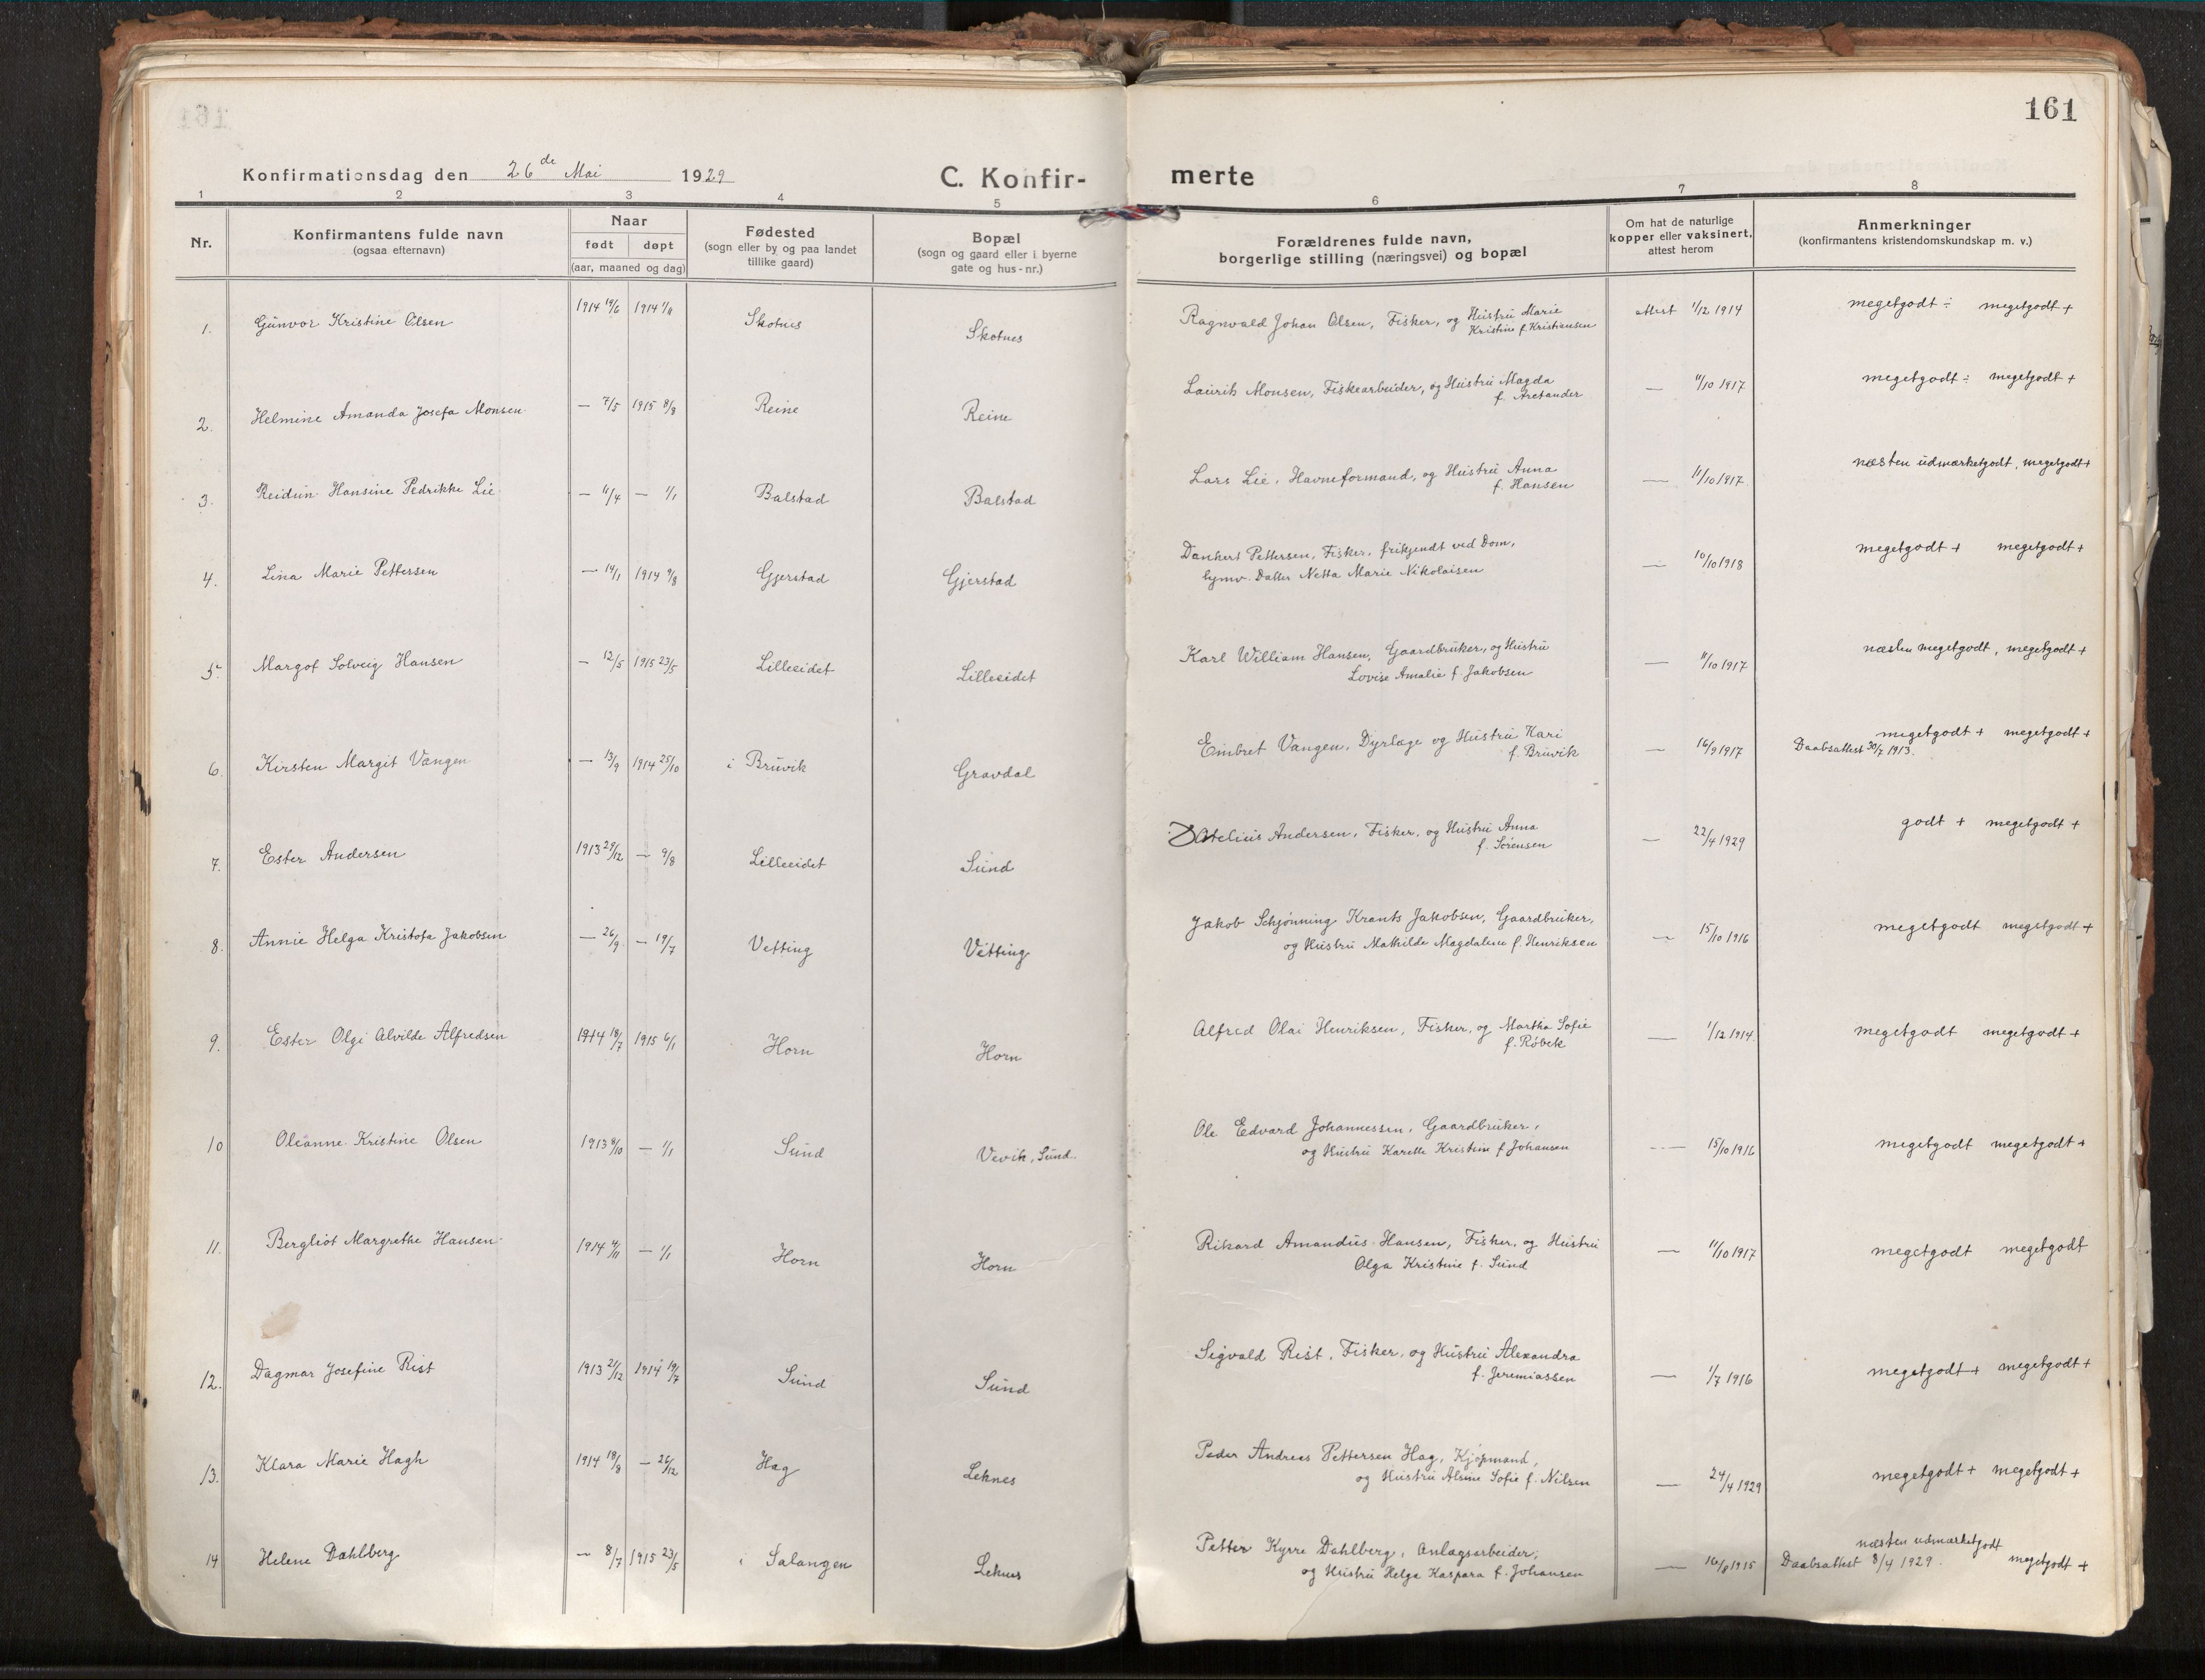 161
Konfirmationsdag den 26de Mai 1929 C. Konfir- merte
1 2 3 4 5 6 7 8
Nr. Konfirmantens fulde navn (ogsaa efternavn) Naar født døpt (aar, maaned og dag) Fødested (sogn eller by og paa landet tillike gaard) Bopæl (sogn og gaard eller i byerne gate og hus-nr.) Forældrenes fulde navn, borgerlige stilling (næringsvei) og bopæl Om hat de naturlige kopper eller vaksinert, attest herom Anmerkninger (konfirmantens kristendomskundskap m. v.)
1. Gunvor Kristine Olsen 1914 19/6 1914 1/11 Skotnes Skotnes Ragnvald Johan Olsen, Fisker, og Hustru Marie attest 1/12 1914 megetgodt ÷ megetgodt +
Kristine f. Kristiansen
2. Helmine Amanda Josefa Monsen — 7/5 1915 8/8 Reine Reine Laurits Monsen, Fiskearbeider, og Hustru Magda — 11/10 1917 megetgodt ÷ megetgodt +
f. Aretander
3. Reidun Hansine Pedrikke Lie — 11/4 — 1/1 Balstad Balstad Lars Lie, Havneformand, og Hustru Anna — 11/10 1917 næsten udmærketgodt, megetgodt +
f. Hansen
4. Lina Marie Pettersen — 14/1 1914 9/8 Gjerstad Gjerstad Dankert Pettersen, Fisker, frikjendt ved Dom, — 10/10 1918 megetgodt + megetgodt +
hjmv. Datter Netta Marie Nikolaisen
5. Margot Solveig Hansen — 12/5 1915 23/5 Lilleeidet Lilleeidet Karl William Hansen, Gaardbruker, og Hustru — 11/10 1917 næsten megetgodt, megetgodt +
Lovise Amalie f. Jakobsen
6. Kirsten Margit Vangen — 13/9 1914 25/10 i Bruvik Gravdal Embret Vangen, Dyrlæge og Hustru Kari — 16/9 1917 megetgodt + megetgodt +
f. Bruvik Daabsattest 30/7 1913.
7. Ester Andersen 1913 29/12 — 9/8 Lilleeidet Sund Andersen, Fisker, og Hustru Anna — 22/4 1929 godt + megetgodt +
f. Sørensen
8. Annie Helga Kristofa Jakobsen — 26/9 — 19/7 Vetting Vetting Jakob Schjønning Krants Jakobsen, Gaardbruker, — 15/10 1916 megetgodt megetgodt +
og Hustru Mathilde Magdalene f. Henriksen
9. Ester Olgi Alvilde Alfredsen 1914 18/7 1915 6/1 Horn Horn Alfred Olai Henriksen, Fisker, og Martha Sofie — 1/12 1914. megetgodt megetgodt +
f. Røbek
10 Oleanne Kristine Olsen 1913 8/10 — 1/1 Sund Vevik, Sund. Ole Edvard Johannessen, Gaardbruker, — 15/10 1916 megetgodt megetgodt +
og Hustru Karette Kristine f. Johansen
11. Bergliot Margrethe Hansen 1914 4/11 — 1/1 Horn Horn Rikard Amandus Hansen, Fisker, og Hustru — 11/10 1917 megetgodt megetgodt
Olga Kristine f. Sund
12. Dagmar Josefine Rist 1913 21/12 1914 19/7 Sund Sund Sigvald Rist, Fisker, og Hustru Alexandra — 1/7 1916 megetgodt + megetgodt +
f. Jeremiassen
13. Klara Marie Hagh 1914 18/8 — 26/12 Hag Leknes Peder Andreas Pettersen Hag, Kjøpmand, — 24/4 1929 megetgodt + megetgodt +
og Hustru Alsine Sofie f. Nilsen
14 Helene Dahlberg — 8/7 1915 23/5 i Salangen Leknes Petter Kyrre Dahlberg, Anlægsarbeider, — 16/8 1915 næsten udmærketgodt
og Hustru Helga Kaspara f. Johansen Daabsattest 8/4 1929. megetgodt +